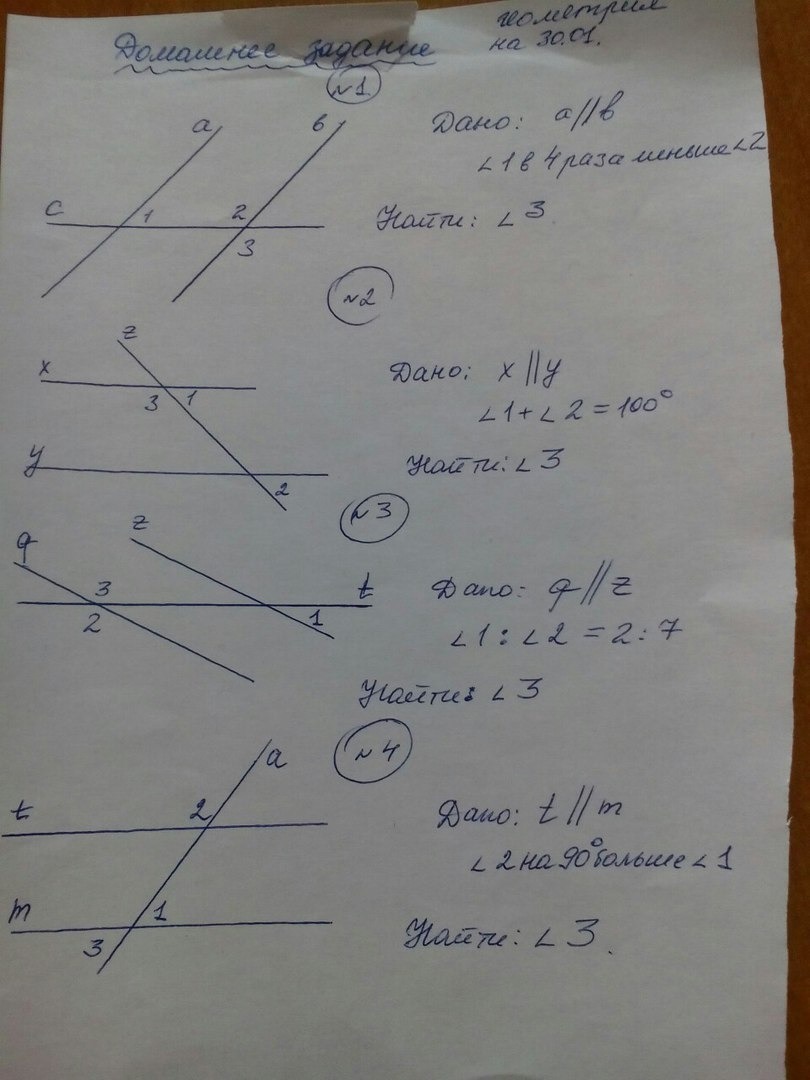 геометрия
на 30.01.
Домашнее задание
№1
a
в
c
1
2
3
Дано: a//в
∠1 в 4 раза меньше ∠2
Найти: ∠3
№2
z
x
3
1
y
2
Дано: x || y
∠1 + ∠2 = 100°
Найти: ∠3
№3
q
z
3
t
2
1
Дано: q // z
∠1 : ∠2 = 2 : 7
Найти: ∠3
№4
a
t
2
m
1
3
Дано: t // m
∠2 на 90° больше ∠1
Найти: ∠3.